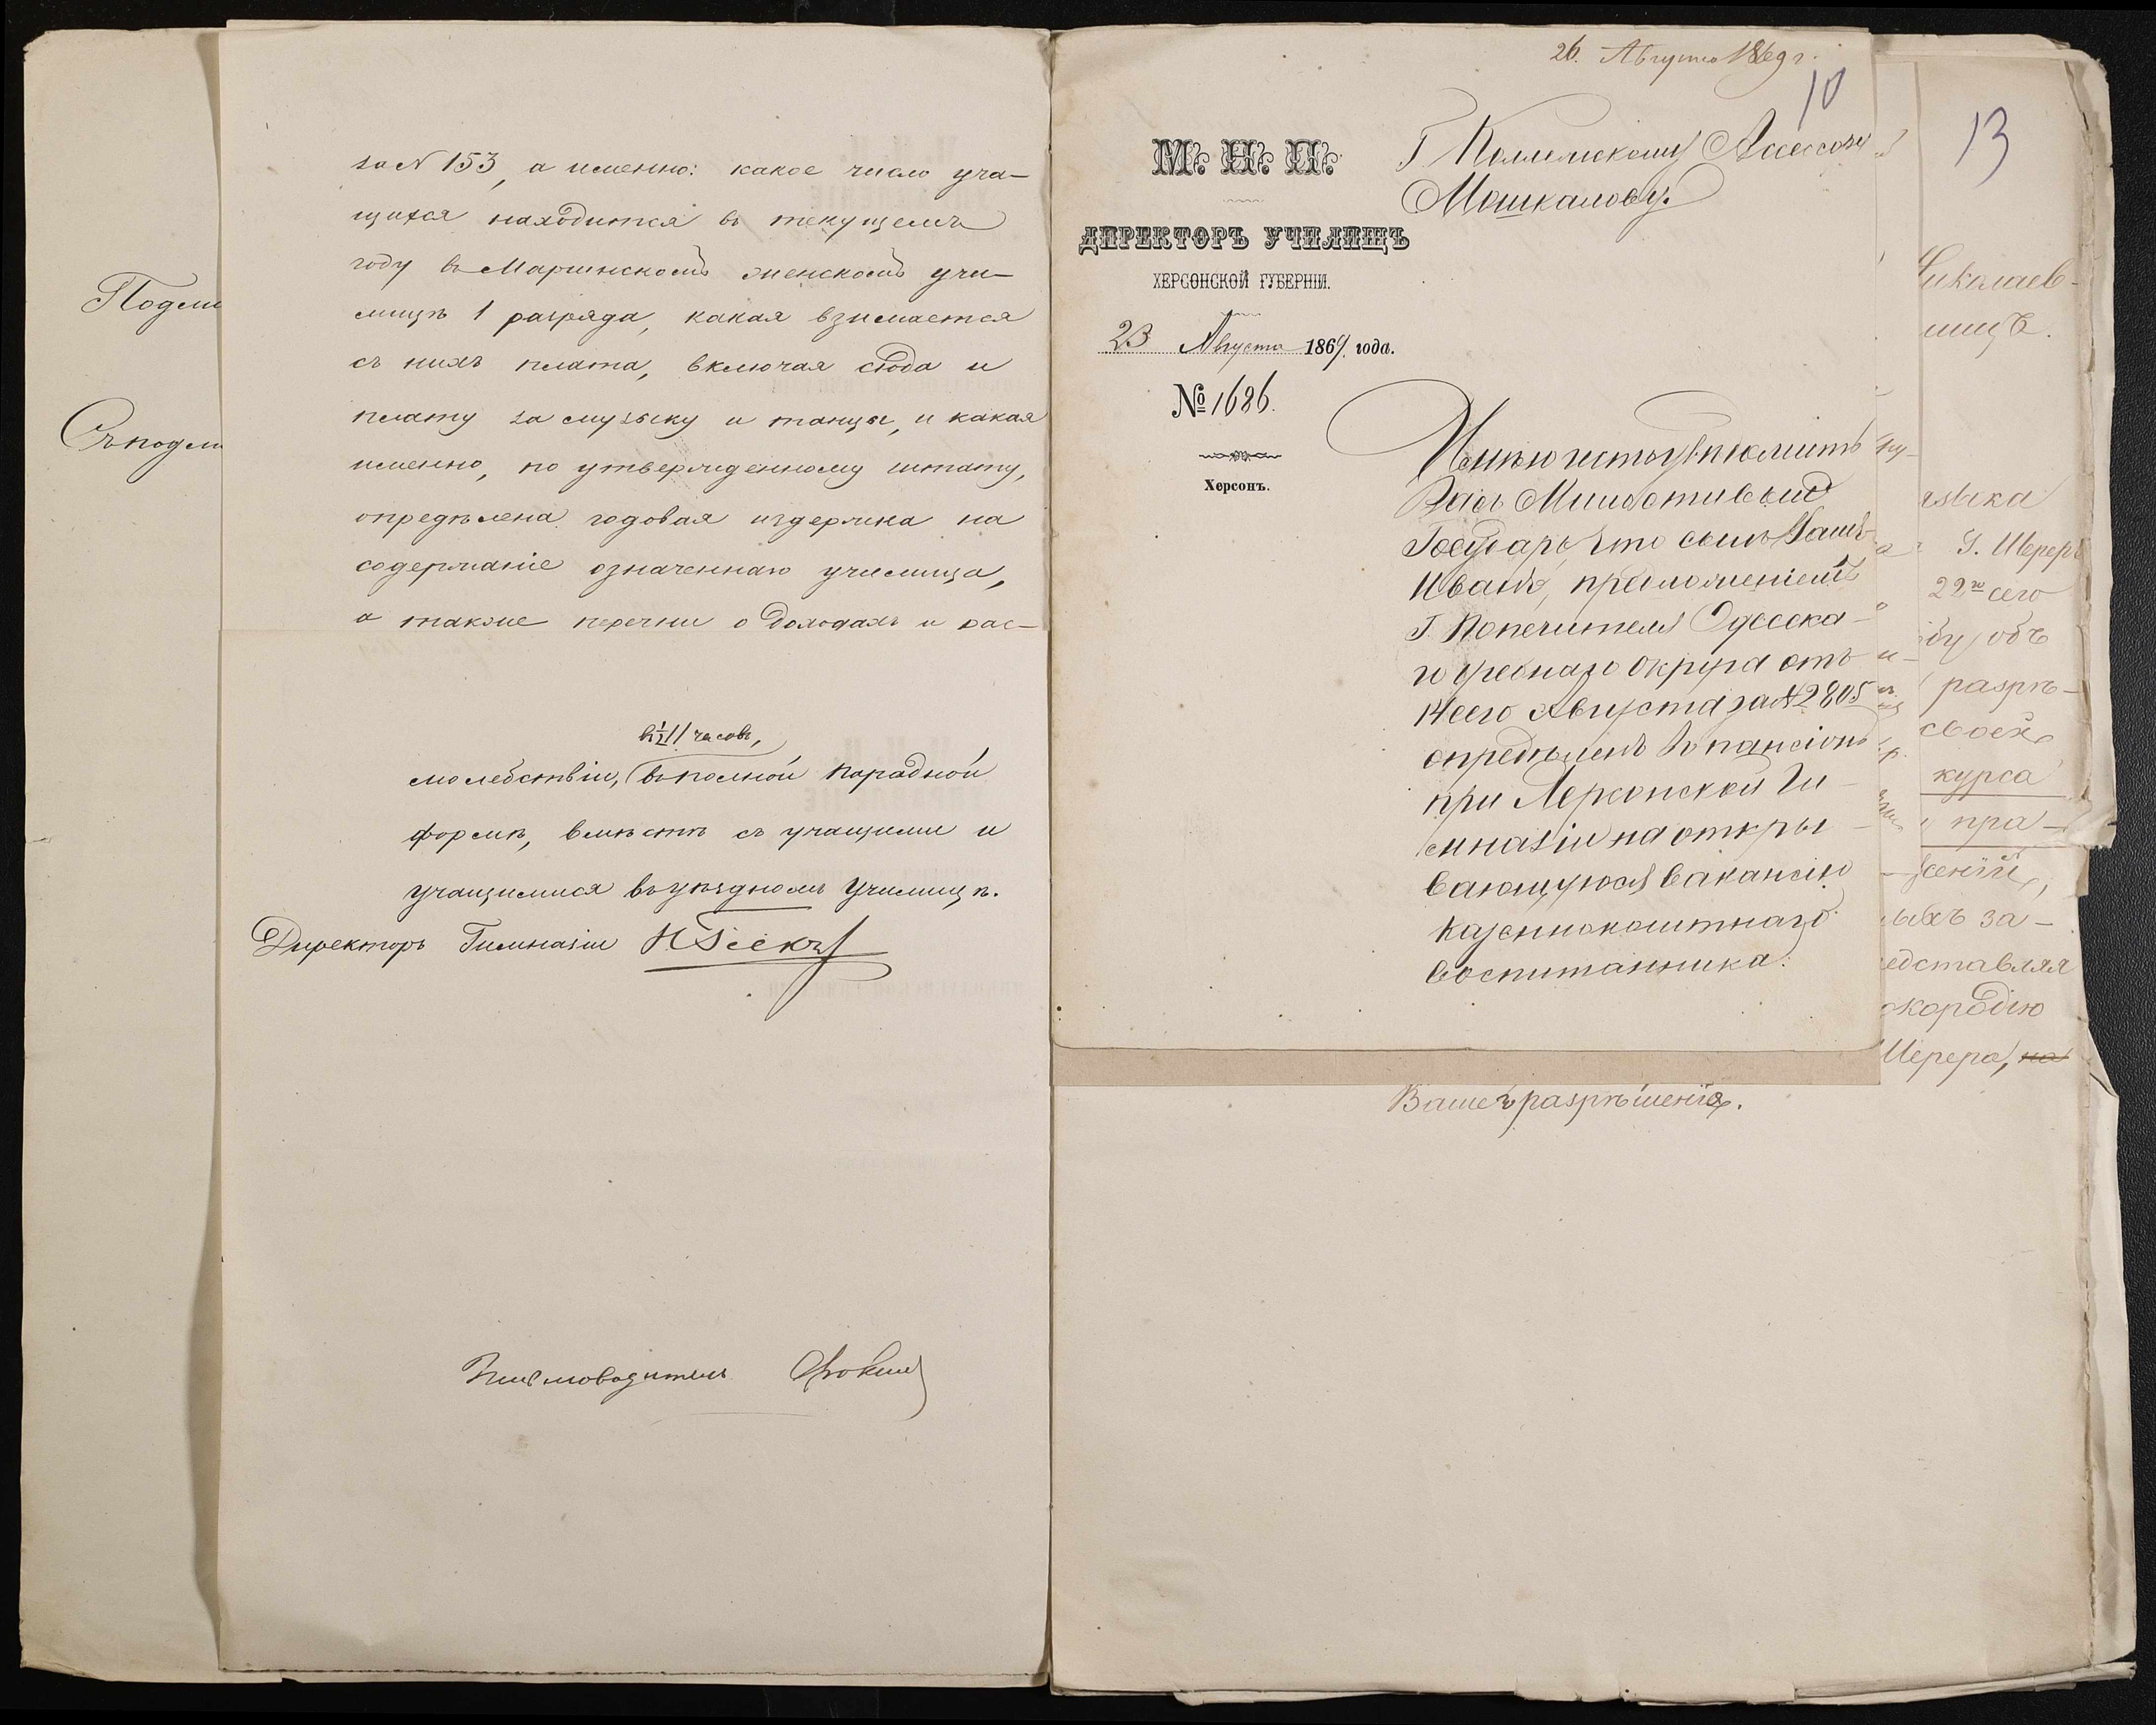 Подли
Съ подли
за N 153, а именно: какое число уча-
щихся находится въ текущемъ
году въ Маріинскомъ женскомъ учи-
лищѣ 1 разряда, какая взимается
съ нихъ плата, включая сюда и
плату за музыку и танцы, и какая
именно, по утвержденному штату,
опредѣлена годовая издержка на
содержаніе означеннаго училища,
а также перечни о доходахъ и рас-
въ ½11 часовъ,
молебствіи, въ полной парадной
формѣ, вмѣстѣ съ учащими и
учащимися въ уѣздномъ училищѣ.
Директоръ Гимназіи
Письмоводитель
26. Августа 1869 г.
10
М. Н. П.
ДИРЕКТОРЪ УЧИЛИЩЪ
ХЕРСОНСКОЙ ГУБЕРНІИ.
23 Августа 1869. года.
№ 1686.
Херсонъ.
Г Коллежскому Ассесору
Мошкалову.
Имѣю честь увѣдомить
Васъ Милостивый
Государь, что сынъ Вашъ
Иванъ, предложеніемъ
Г. Попечителя Одесска-
го Учебнаго Округа отъ
14 сего Августа за N 2805
опредѣленъ въ пансіонъ
при Херсонской Ги-
мназіи на откры-
вающуюся вакансію
казеннокоштнаго
воспитанника.
13
Николаев-
лищѣ.
языка
Г. Шереръ
22го сего
бу объ
разрѣ-
своей
курса
пра-
жений,
ыхъ за-
едставляя
окородію
Шерера, на
Вашего разрѣшенія.